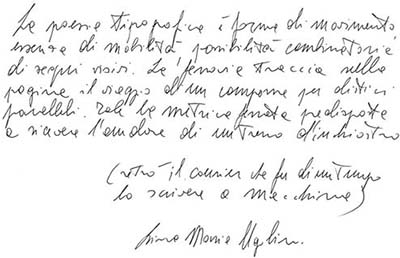 La poesia tipografica è forma di movimento
essenza di mobilità possibilità combinatoria
di segni visivi. La ferrovia traccia nelle
pagine il viaggio di un comporre per distici
paralleli. Tale la metrica ferrata predisposta
a ricevere l'andore di un treno d'inchiostro
(retrò il courier che fu di un tempo
lo scrivere a macchina)
Maria